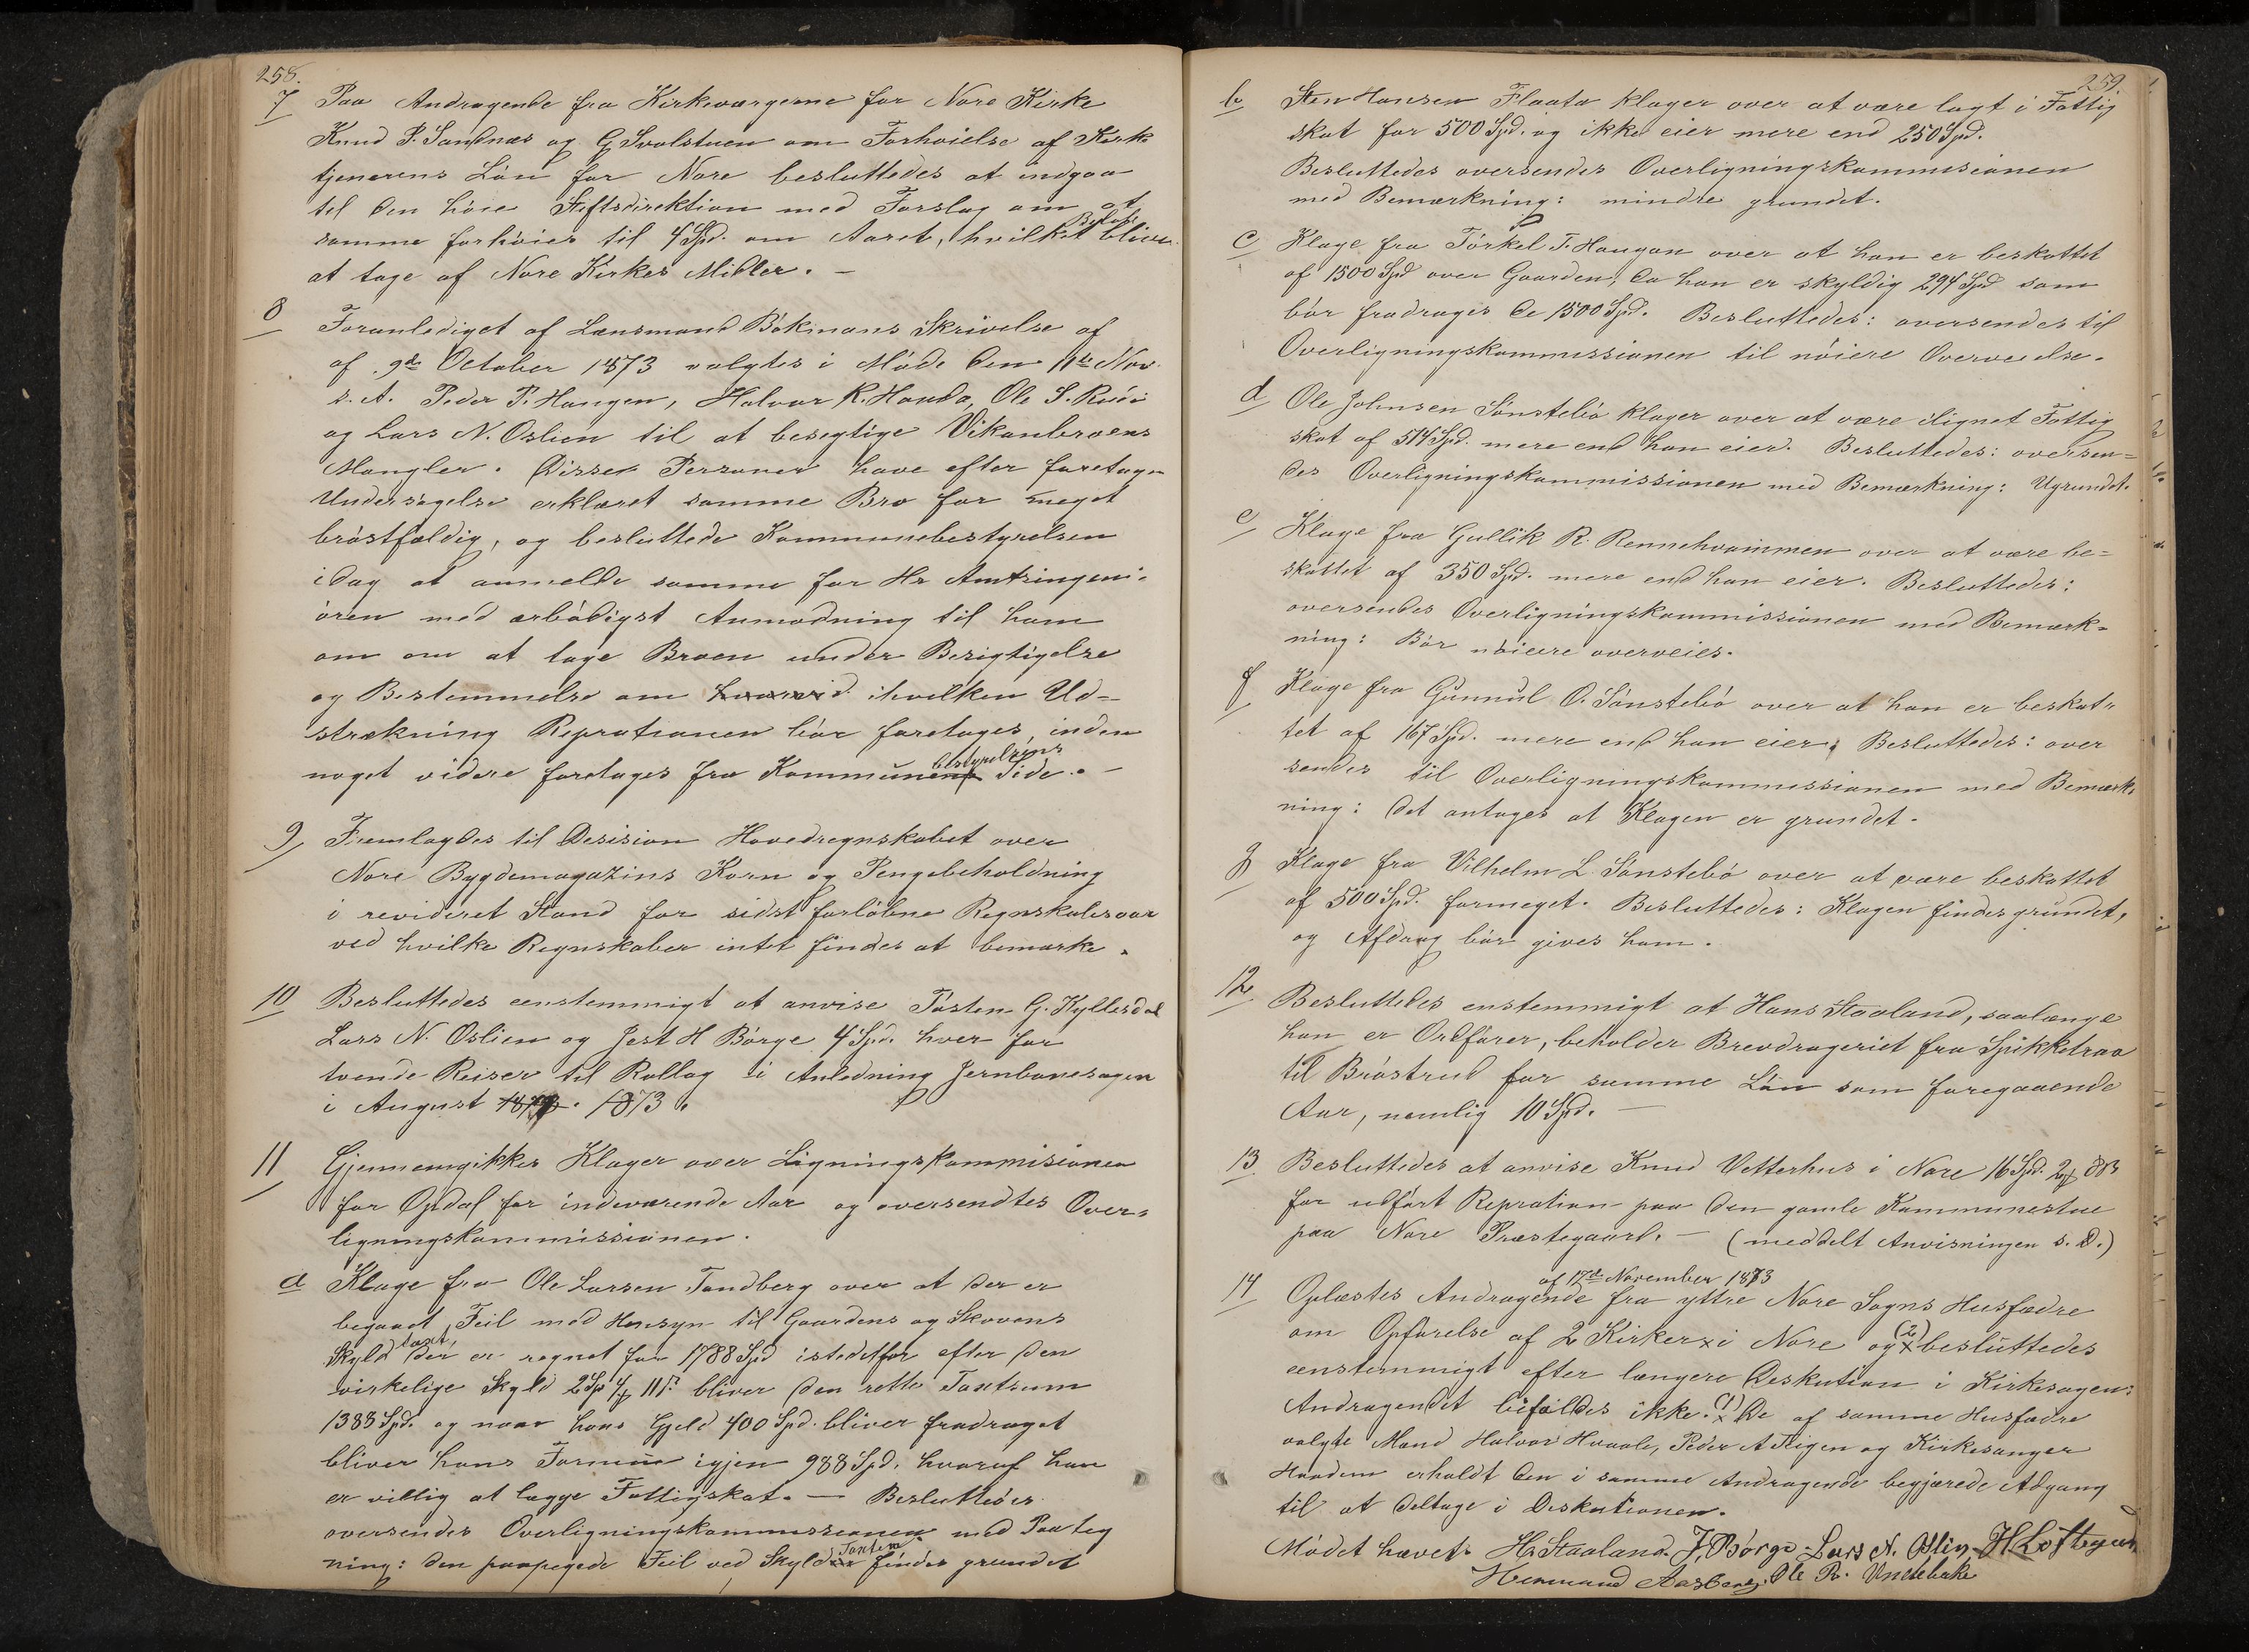 258.
7 Paa Andragende fra Kirkeværgerne for Nore Kirke
Knud P. Sandnæs og G Svalstuen om Forhøielse af Kirke
tjenerens Løn for Nore besluttedes at indgaa
til den høie Stiftsdirektion med Forslag om at
samme forhøies til 4 Spd. om Aaret, hvilket Beløb bliver
at tage af Nore Kirkes Midler. —
8 Foranlediget af Lænsmand Bökmans Skrivelse af
af 9de October 1873 valgtes i Møde den 11te Nov.
s. A. Peder P. Haugen, Halvor K. Hauda, Ole S. Ruud
og Lars N. Oslien til at besigtige Vikanbroens
Mangler. Disse Personer have efter foretagen
Undersøgelse erklæret samme Bro for meget
brøstfældig, og besluttede Kommunebestyrelsen
idag at anmelde samme for Hr Amtsingeni-
øren med ærbødigst Anmodning til ham
om om at tage Broen under Besigtigelse
og Bestemmelse om hvorvid ihvilken Ud=
strækning Reprationen bør foretages, inden
noget videre foretages fra Kommunens bestyrelsens Side. —
9 Fremlagdes til Desision Hovedregnskabet over
Nore Bygdemagazins Korn og Pengebeholdning
i revideret Stand for sidst forløbne Regnskabsaar
ved hvilke Regnskaber intet findes at bemærke.
10 Besluttedes eenstemmigt at anvise Tosten G. Kyllesdal
Lars N. Oslien og Jest H Børge 4 Spd. hver for
tvende Reiser til Rollag i Anledning Jernbanesagen
i August 1873.
11 Gjennemgikkes Klager over Ligningskommisionen
for Opdal for indeværende Aar og oversendtes Over=
ligningskommissionen.
a Klage fra Ole Larsen Tandberg over at der er
begaaet Feil med Hensyn til Gaardens og Skovens
Skyld taxt, der er regnet for 1788 Spd istedetfor efter den
virkelige Skyld 2 Sp 4 11 s. bliver den rette Taxtsum
1388 Spd. og naar hans Gjeld 400 Spd. bliver fradraget
bliver hans Formue igjen 988 Spd. hvoraf han
er villig at lægge Fattigskat. — Besluttedes
oversendes Overligningskommissionen med Paateg
ning: den paapegede Feil ved Skyld Taxten findes grundet
259.
b Sten Hansen Flaata klager over at være lagt i Fattig
skat for 500 Spd. og ikke eier mere end 250 Spd.
Besluttedes oversendes Overligningskommissionen
med Bemærkning: mindre grundet.
c Klage fra Törkel T. Haugan over at han er beskattet
af 1500 Spd over Gaarden, da han er skyldig 294 Spd som
bør fradrages de 1500 Spd. Besluttedes: oversendes til
Overligningskommissionen til nøiere Overveielse.
d Ole Johnsen Sønstebø klager over at være ilignet Fattig
skat af 514 Spd. mere end han eier. Besluttedes: oversen=
des Overligningskommissionen med Bemærkning: Ugrundet.
e Klage fra Gullik R. Rennehvammen over at være be=
skattet af 350 Spd. mere end han eier. Besluttedes:
oversendes Overligningskommissionen med Bemærk=
ning: Bør nøiere overveies.
f Klage fra Gunnul O. Sønstebø over at han er beskat=
tet af 167 Spd. mere end han eier. Besluttedes: over
sendes til Overligningskommissionen med Bemærk
ning: det antages at Klagen er grundet.
g Klage fra Vilhelm L. Sønstebø over at være beskattet
af 500 Spd. formeget. Besluttedes: Klagen findes grundet,
og Afdrag bør gives ham.
12 Besluttedes enstemmigt at Hans Staaland, saalænge
han er Ordfører, beholder Brevdrageriet fra Spikketraa
til Brøstrud for samme Løn som foregaaende
Aar, nemlig 10 Spd. —
13. Besluttedes at anvise Knud Vetterhus i Nore 16 Spd. 2
for udført Repration paa den gamle Kommunestue
paa Nore Præstegaard. — (meddelt Anvisningen s. D.)
14 Oplæstes Andragende af 17de November 1873 fra yttre Nore Sogns Husfædre
om Opførelse af 2 Kirker x i Nore og (2) x besluttedes
eenstemmigt efter længere Deskution i Kirkesagen:
Andragendet bifaldes ikke. (1) x De af samme Husfædre
valgte Mænd Halvor Hvaale, Peder A Eigen og Kirkesanger
erholdt den i samme Andragende begjærede Adgang
til at deltage i Deskutionen.
Mødet hævet. H. Staaland. J. Børge. Lars N. Oslin. H. Löftsgaard
Hermand Aasberg. Ole P.